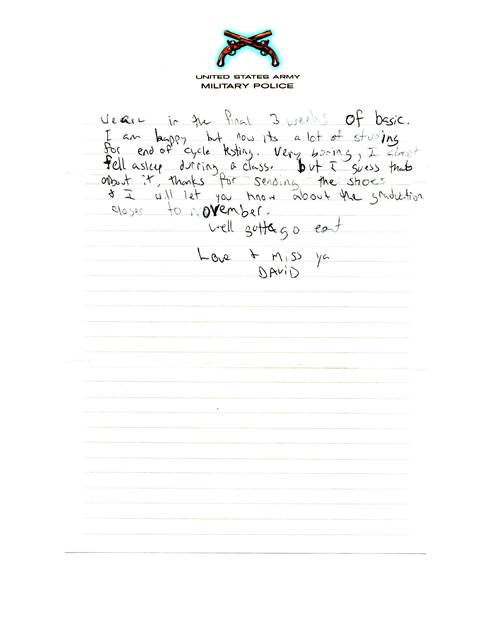 UNITED STATES ARMY
MILITARY POLICE
we are in the final 3 weeks of basic.
I am happy but now its a lot of studing
for end of cycle testing. Very boring, I almost
fell asleep durring a class. but I guess thats
about it, thanks for sending the shoes
& I will let you know about the graduation
closer to november.
well gotta go eat
Love & miss ya
DAVID